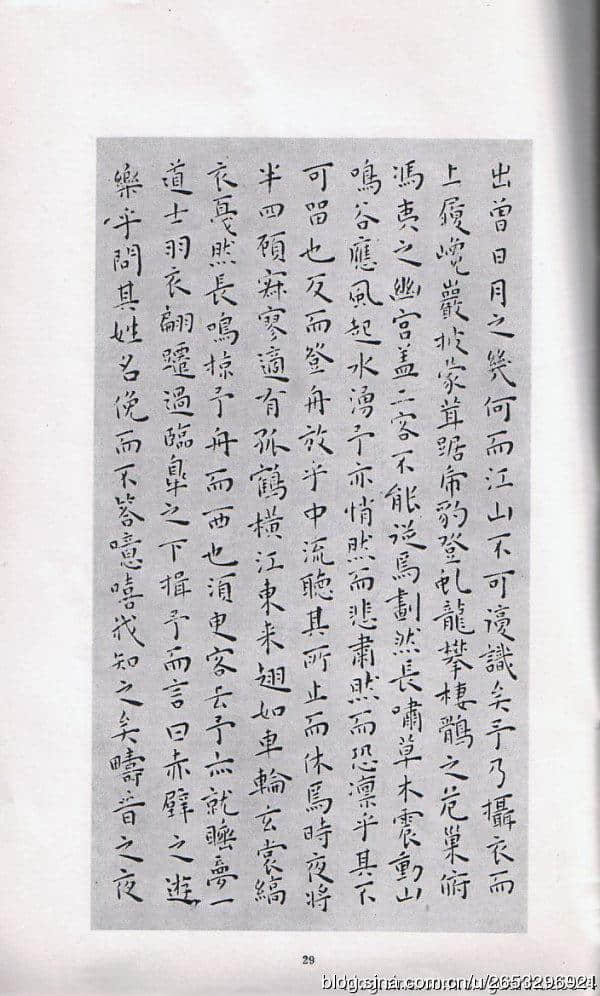 出曾日月之幾何而江山不可復識矣予乃攝衣而
上履巉巖披蒙茸踞虎豹登虬龍攀棲鶻之危巢俯
馮夷之幽宮盖二客不能從焉劃然長嘯草木震動山
鳴谷應風起水湧予亦悄然而悲肅然而恐凛乎其不
可留也反而登舟放乎中流聽其所止而休焉時夜將
半四顧寂寥適有孤鶴橫江東来翅如車輪玄裳縞
衣戛然長鳴掠予舟而西也須臾客去予亦就睡夢一
道士羽衣翩躚過臨臯之下揖予而言曰赤壁之遊
樂乎問其姓名俛而不答噫嘻我知之矣疇昔之夜
29
blog.sina.com.cn/u/2653296921